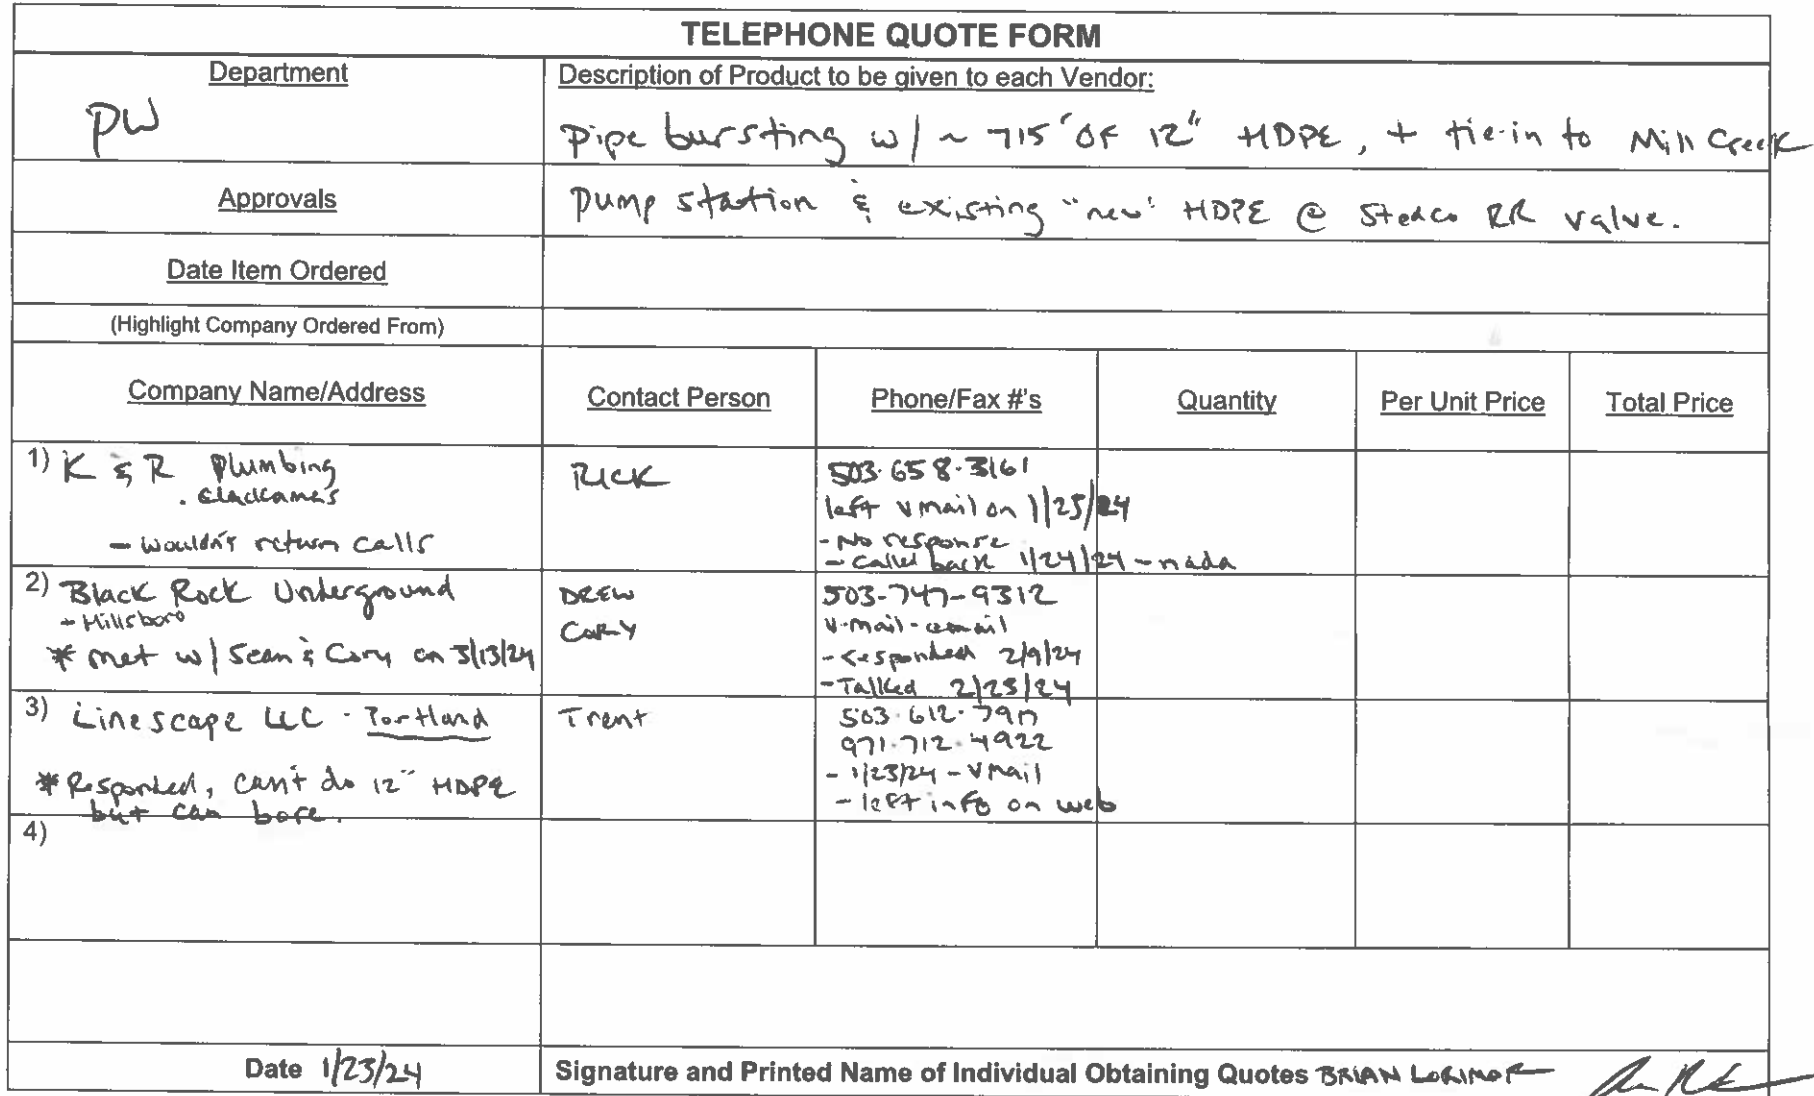 TELEPHONE QUOTE FORM
Department
PW
Description of Product to be given to each Vendor:
Pipe bursting w/ ~ 715' OF 12" HDPE, + tie-in to Mill Creek
Approvals
Pump station & existing "new" HDPE @ Stedco RR valve.
Date Item Ordered
(Highlight Company Ordered From)
Company Name/Address
Contact Person
Phone/Fax #'s
Quantity
Per Unit Price
Total Price
1) K & R Plumbing
- Clackamas
- Wouldn't return calls
RICK
503-658-3161
left vmail on 1/23/24
- No response
- Called back 1/24/24 - nada
2) Black Rock Underground
- Hillsboro
* Met w/ Sean & Cory on 3/13/24
DREW
CORY
503-747-9312
v-mail-email
- responded 2/9/24
- Talked 2/23/24
3) Linescape LLC - Portland
* Responded, can't do 12" HDPE
but can bore.
Trent
971-712-4922
- 1/23/24 - Vmail
- left info on web
4)
Date 1/23/24
Signature and Printed Name of Individual Obtaining Quotes BRIAN LORIMOR